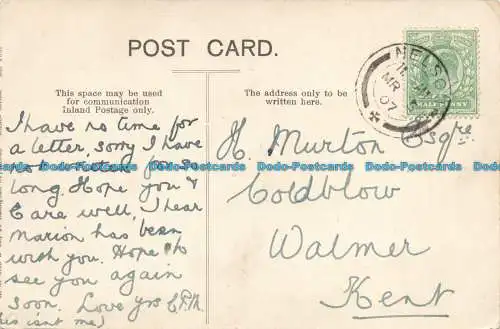 POST CARD.
This space may be used
for communication
Inland Postage only.
The address only to be
written here.
NELSO
MR
07
HALFPENNY
I have no time for
a letter, sorry I have
not written you so
long. Hope you &
E are well, I hear
Marion has been
with you. Hope to
see you again
soon. Love yrs
his isnt me)
H. Murton Esqre
Coldblow
Walmer
Kent
Dodo-Postcards Dodo-Postcards Dodo-Postcards Dodo-Postcards